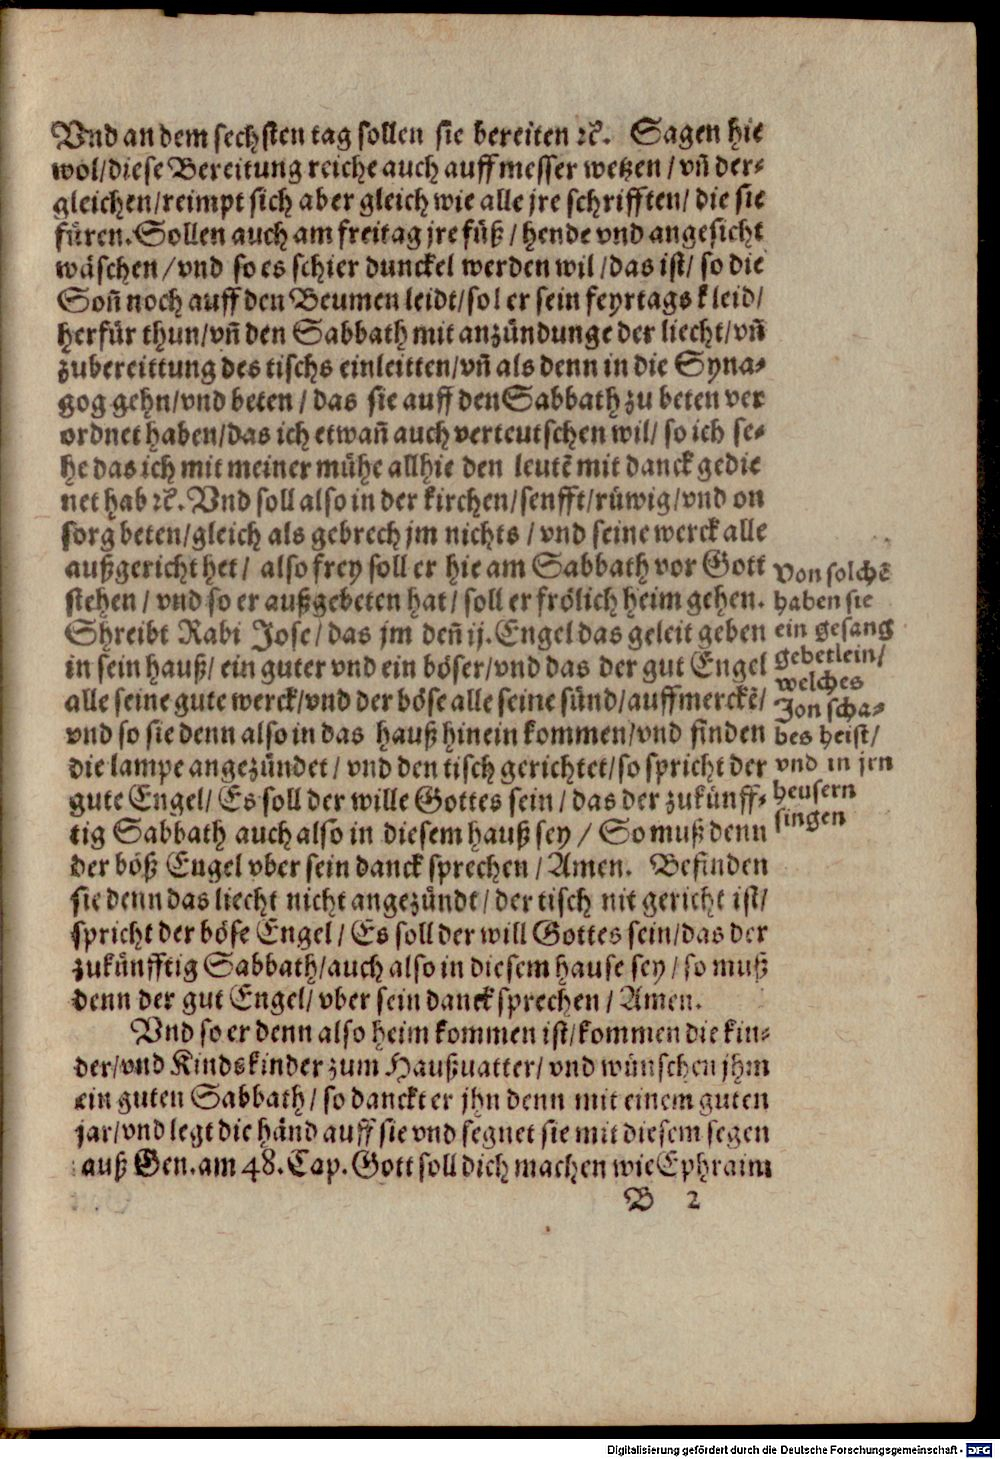 Vnd an dem sechsten tag sollen sie bereiten ꝛc̃. Sagen hie
wol/diese Bereitung reiche auch auff messer wetzen / vñ der-
gleichen/reimpt sich aber gleich wie alle jre schrifften/ die sie
füren. Sollen auch am freitag jre füß / hende vnd angesicht
wäschen /vnd so es schier dunckel werden wil /das ist/ so die
Soñ noch auff den Beumen leidt/sol er sein feyrtags kleid/
herfür thun/vñ den Sabbath mit anzündunge der liecht/vñ
zubereittung des tischs einleitten/vñ als denn in die Syna-
gog gehn/vnd beten / das sie auff den Sabbath zu beten ver
ordnet haben/das ich etwañ auch verteutschen wil/ so ich se-
he das ich mit meiner mühe allhie den leutẽ mit danck gedie
net hab ꝛc̃. Vnd soll also in der kirchen/senfft/rüwig/vnd on
sorg beten/gleich als gebrech jm nichts / vnd seine werck alle
außgericht het/ also frey soll er hie am Sabbath vor Gott
stehen / vnd so er außgebeten hat/ soll er frölich heim gehen.
Shreibt Rabi Jose/das jm deñ ij. Engel das geleit geben
in sein hauß/ ein guter vnd ein böser/vnd das der gut Engel
alle seine gute werck/vnd der böse alle seine sünd/auffmerckẽ/
vnd so sie denn also in das hauß hinein kommen/vnd finden
die lampe angezündet/ vnd den tisch gerichtet/so spricht der
gute Engel/ Es soll der wille Gottes sein / das der zukünff-
tig Sabbath auch also in diesem hauß sey / So muß denn
der böß Engel vber sein danck sprechen / Amen. Befinden
sie denn das liecht nicht angezündt/ der tisch nit gericht ist/
spricht der böse Engel/ Es soll der will Gottes sein/das der
zukünfftig Sabbath/auch also in diesem hause sey / so muß
denn der gut Engel/ vber sein danck sprechen / Amen.
Vnd so er denn also heim kommen ist/kommen die kin-
der/vnd Kindskinder zum Haußuatter/ vnd wünschen jhm
ein guten Sabbath / so danckt er jhn denn mit einem guten
jar/vnd legt die händ auff sie vnd segnet sie mit diesem segen
auß Gen. am 48. Cap. Gott soll dich machen wie Ephraim
B 2
Von solchẽ
haben sie
ein gesang
gebetlein/
welches
Jon scha-
bes heist/
vnd in jrn
heusern
singen
Digitalisierung gefördert durch die Deutsche Forschungsgemeinschaft - DFG